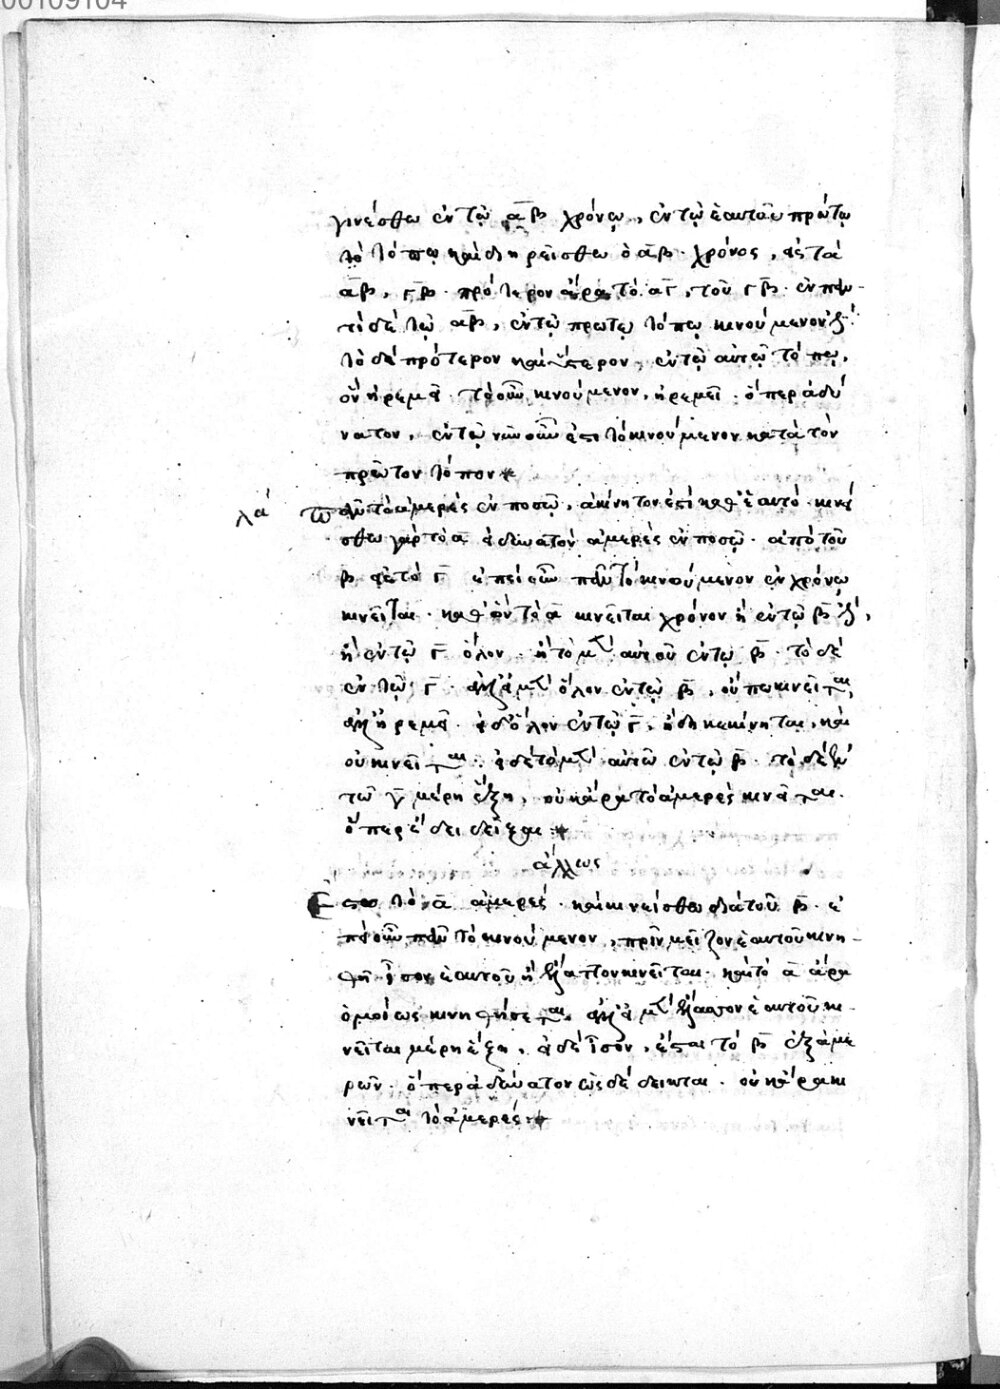 00109104
γινέσθω ἐν τῷ α̅β̅ χρόνῳ, ἐν τῷ ἑαυτοῦ πρώτῳ
τῷ τόπῳ καὶ διῃρείσθω ὁ α̅β̅ χρόνος, εἰς τὰ
α̅γ̅, γ̅β̅. πρότερον ἄρα τὸ α̅γ̅, τοῦ γ̅β̅. ἐν παν-
τὶ δὲ τῷ α̅β̅, ἐν τῷ πρώτῳ τόπῳ κινούμενον ἦν.
τὸ δὲ πρότερον καὶ ὕστερον, ἐν τῷ αὐτῷ τόπῳ,
ὂν ἠρεμεῖ. τὸ οὖν κινούμενον, ἠρεμεῖ. ὅπερ ἀδύ
νατον. ἐν τῷ νῦν οὖν ἐστι τὸ κινούμενον κατὰ τὸν
πρῶτον τόπον
λα πᾶν τὸ ἀμερὲς ἐν ποσῷ, ἀκίνητον ἐστὶ καθ' ἑαυτό. κινεί
σθω γὰρ τὸ α̅ εἰ δυνατὸν ἀμερὲς ἐν ποσῷ. ἀπὸ τοῦ
β̅ εἰς τὸ γ̅ ἐπεὶ οὖν πᾶν τὸ κινούμενον ἐν χρόνῳ
κινεῖται. καθ' ὃν τὸ α̅ κινεῖται χρόνον ἢ ἐν τῷ β̅ ἐστί,
ἢ ἐν τῷ γ̅ ὅλον. ἢ τὸ μὲν αὐτοῦ ἐν τῷ β̅. τὸ δὲ
ἐν τῷ γ̅. ἀλλ' εἰ μὲν ὅλον ἐν τῷ β̅, οὔπω κινεῖται,
ἀλλ' ἠρεμεῖ. εἰ δ' ὅλον ἐν τῷ γ̅, ἤδη κεκίνηται, καὶ
οὐ κινεῖται. εἰ δὲ τὸ μὲν αὐτοῦ ἐν τῷ β̅. τὸ δὲ ἐν
τῷ γ̅ μέρη ἕξει, οὐκ ἄρα τὸ ἀμερὲς κινεῖται.
ὅπερ ἔδει δεῖξαι
ἄλλως
Ἔστω τὸ α̅ ἀμερές. καὶ κινείσθω διὰ τοῦ β̅. ἐ
πεὶ οὖν πᾶν τὸ κινούμενον, πρὶν μεῖζον ἑαυτοῦ κινη-
θῇ ἴσον ἑαυτοῦ ἢ ἔλαττον κινεῖται. καὶ τὸ α̅ ἄρα
ὁμοίως κινηθήσεται. ἀλλ' εἰ μὲν ἔλασσον ἑαυτοῦ κι-
νεῖται μέρη ἕξει, εἰ δὲ ἴσον, ἔσται τὸ β̅ ἐξ ἀμε
ρῶν. ὅπερ ἀδύνατον ὡς δέδεικται. οὐκ ἄρα κι
νεῖται τὸ ἀμερές